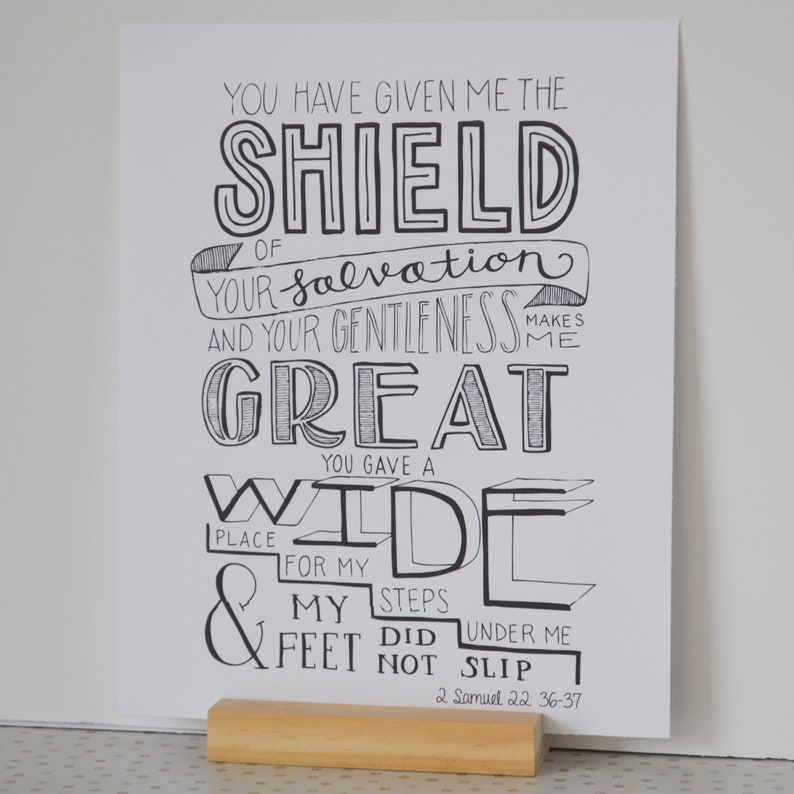 YOU HAVE GIVEN ME THE
SHIELD
OF
YOUR salvation
AND YOUR GENTLENESS MAKES ME
GREAT
YOU GAVE A
WIDE
PLACE
FOR MY
STEPS
UNDER ME
& MY FEET DID NOT SLIP
2 Samuel 22: 36-37